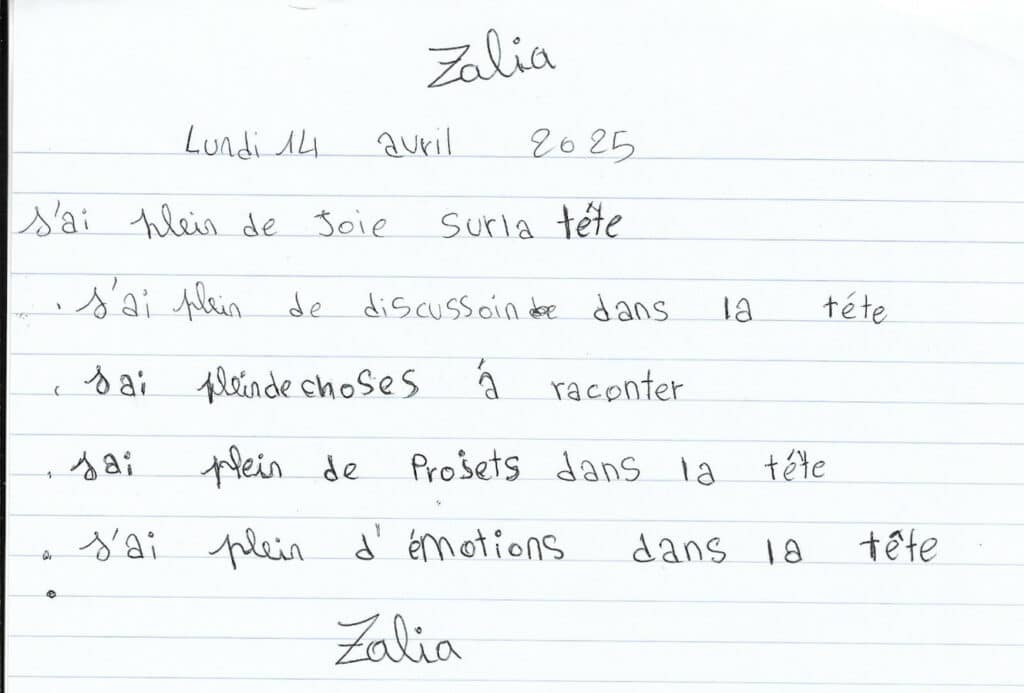 Zalia
Lundi 14 avril 2025
J'ai plein de Joie surla tête
. J'ai plein de discussoin de dans la téte
. Jai pleindechoses à raconter
. Jai plein de Projets dans la téte
. J'ai plein d'émotions dans la tête
.
Zalia